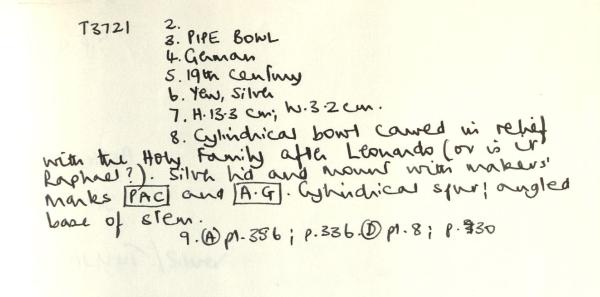 T3721 2.
3. PIPE BOWL
4. German
5. 19th century
6. Yew, Silver
7. H. 13.3 cm; W. 3.2 cm.
8. Cylindrical bowl carved in relief
with the Holy Family after Leonardo (or is it
Raphael?). Silver lid and mount with makers'
marks PAC and A.G. Cylindrical spur; angled
base of stem.
9. (A) pl. 386; p. 336. (D) pl. 8; p. 330